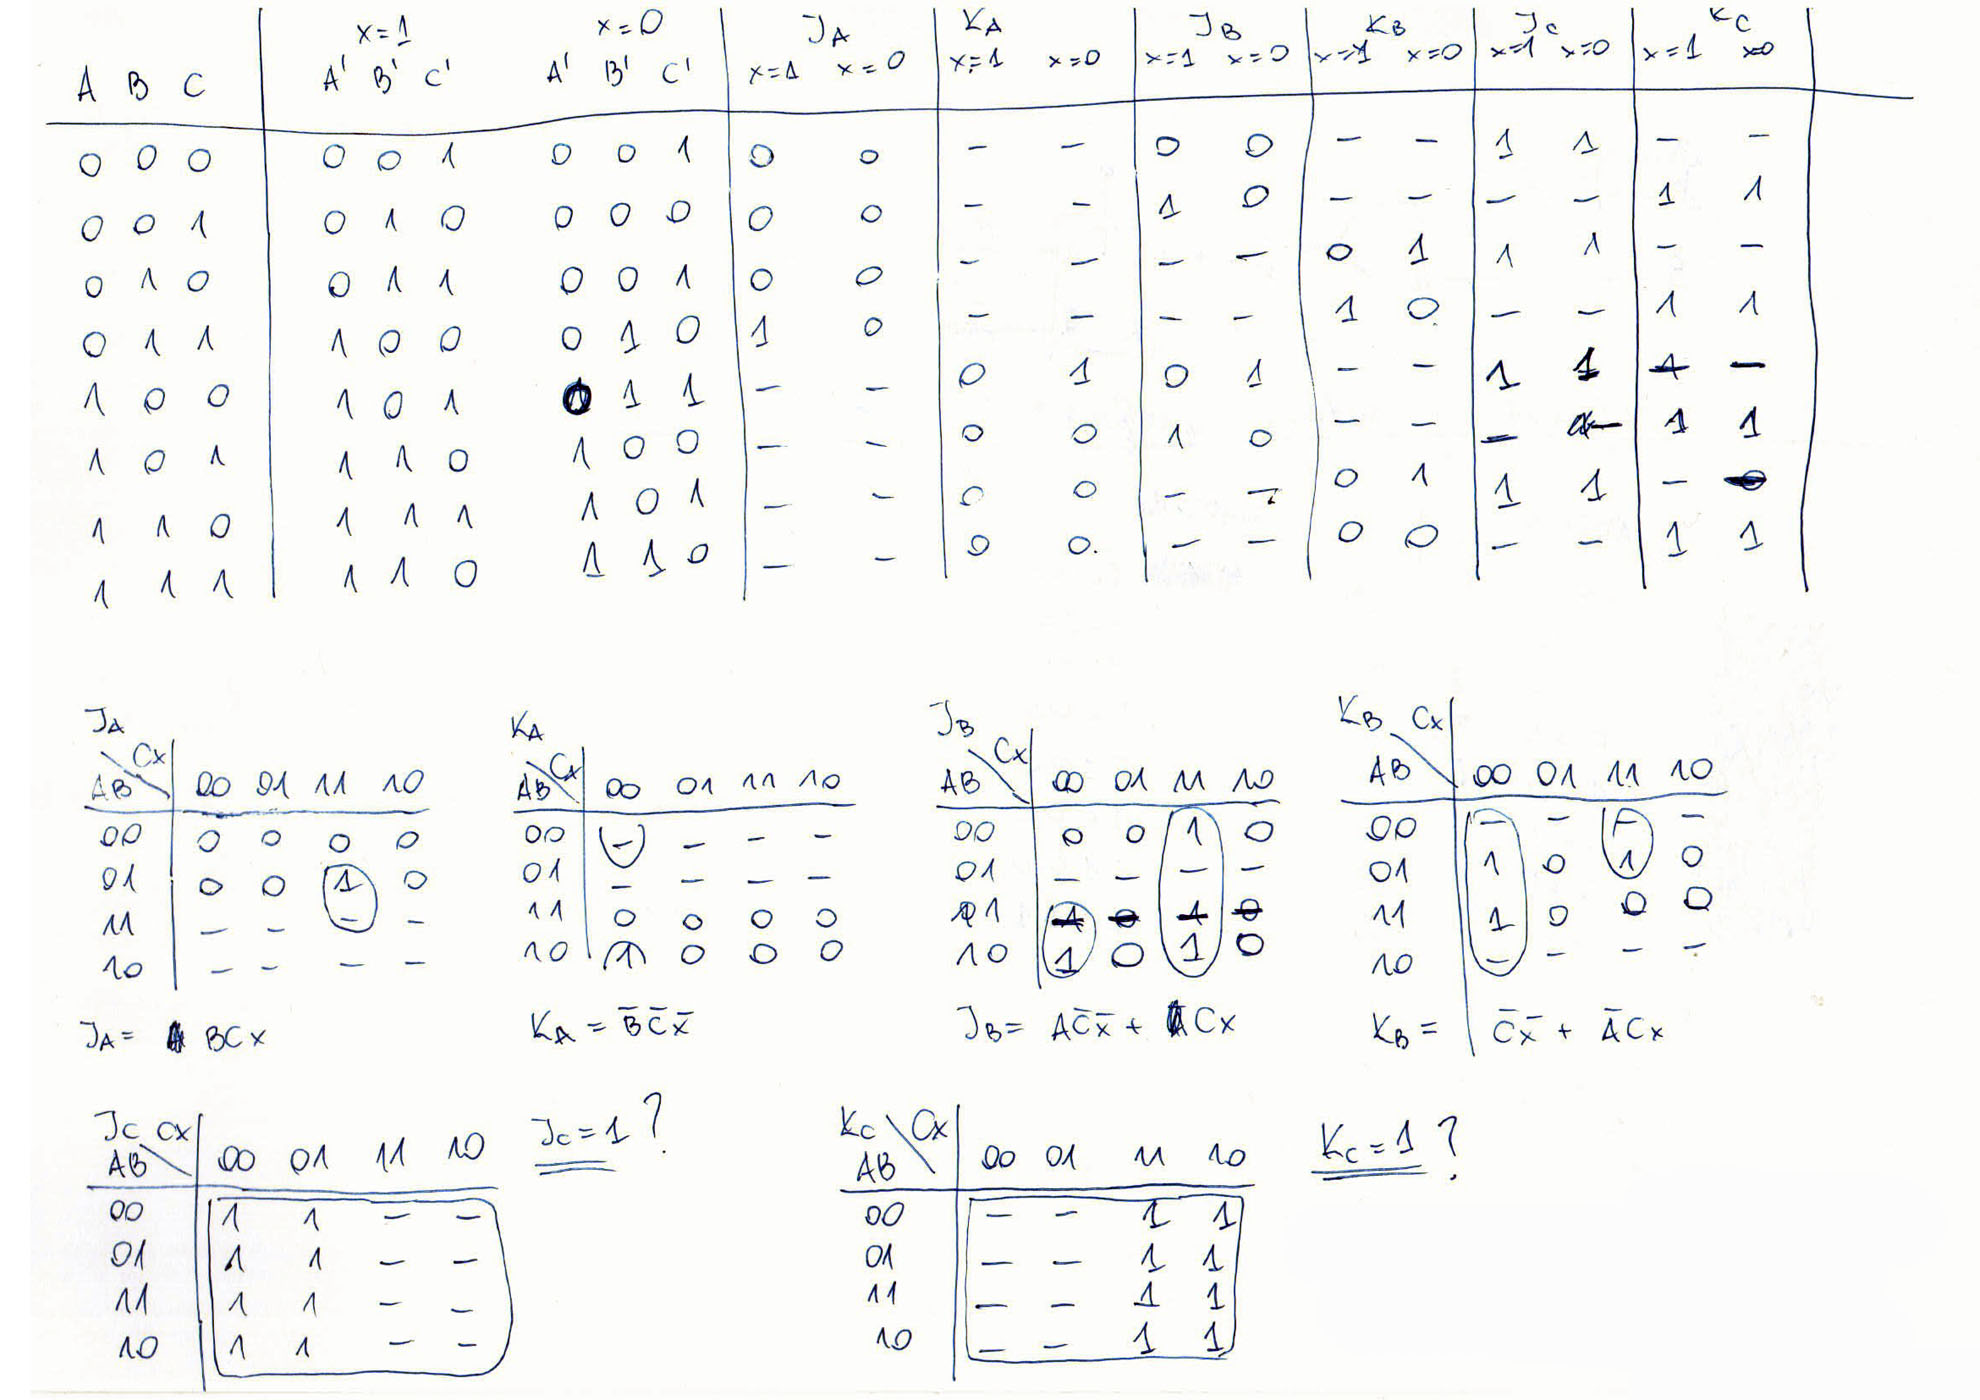 x=1 x=0 JA KA JB KB Jc KC
A B C A' B' C' A' B' C' x=1 x=0 x=1 x=0 x=1 x=0 x=1 x=0 x=1 x=0 x=1 x=0
0 0 0 0 0 1 0 0 1 0 0 - - 0 0 - - 1 1 - -
0 0 1 0 1 0 0 0 0 0 0 - - 1 0 - - - - 1 1
0 1 0 0 1 1 0 0 1 0 0 - - - - 0 1 1 1 - -
0 1 1 1 0 0 0 1 0 1 0 - - - - 1 0 - - 1 1
1 0 0 1 0 1 0 1 1 - - 0 1 0 1 - - 1 1 - -
1 0 1 1 1 0 1 0 0 - - 0 0 1 0 - - - - 1 1
1 1 0 1 1 1 1 0 1 - - 0 0 - - 0 1 1 1 - -
1 1 1 1 1 0 1 1 0 - - 0 0. - - 0 0 - - 1 1
JA
Cx
AB 00 01 11 10
00 0 0 0 0
01 0 0 1 0
11 - - - -
10 - - - -
JA = BCx
KA
Cx
AB 00 01 11 10
00 - - - -
01 - - - -
11 0 0 0 0
10 1 0 0 0
KA = B̅ C̅ x̅
JB
Cx
AB 00 01 11 10
00 0 0 1 0
01 - - - -
11 1 0 1 0
10 1 0 1 0
JB = AC̅x̅ + Cx
KB Cx
AB 00 01 11 10
00 - - - -
01 1 0 1 0
11 1 0 0 0
10 - - - -
KB = C̅x̅ + A̅Cx
JC CX
AB 00 01 11 10
00 1 1 - -
01 1 1 - -
11 1 1 - -
10 1 1 - -
Jc = 1 ?
KC Cx
AB 00 01 11 10
00 - - 1 1
01 - - 1 1
11 - - 1 1
10 - - 1 1
KC = 1 ?